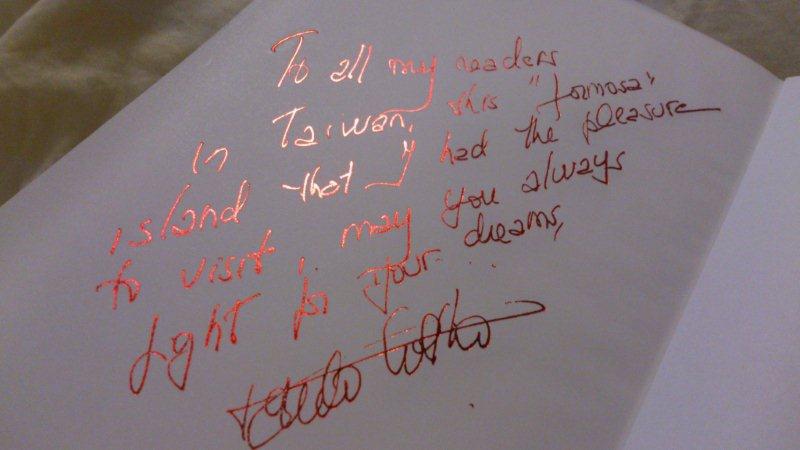 To all my readers
in Taiwan, this "formosa"
island that I had the pleasure
to visit, may you always
fight for your dreams,
Paulo Coelho